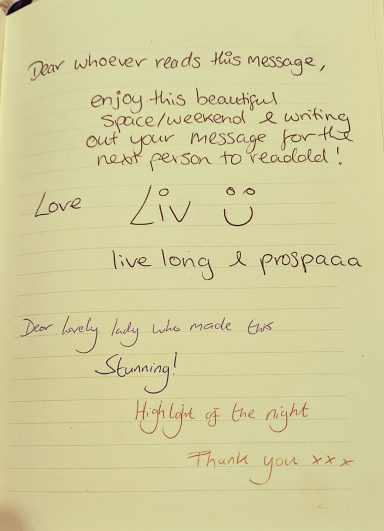 Dear whoever reads this message,
enjoy this beautiful
space/weekend & writing
out your message for the
next person to readddd!
Love Liv
live long & prospaaa
Dear lovely lady who made this
Stunning!
Highlght of the night
Thank you xxx